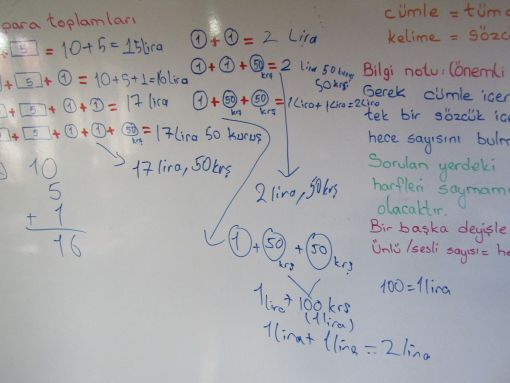 para toplamları
+ 5 = 10+5=15lira
+ 5 + 1 = 10+5+1=16lira
+ 5 + 1 + 1 = 17 lira
+ 5 + 1 + 1 + 50 krş = 17 Lira 50 kuruş
17 lira, 50krş
10
5
+ 1
16
1 + 1 = 2 Lira
1 + 1 + 50 krş = 2 lira 50 krş
50 krş
1 + 50 krş + 50 krş = 1 Lira + 1 Lira = 2 Lira
2 lira, 50 krş
1 + 50 krş + 50 krş
1 lira + 100 krş
(1 lira)
1 lira + 1 lira = 2 lira
cümle = tüm
kelime = sözc
Bilgi notu: (önemli
Gerek cümle içer
tek bir sözcük içe
hece sayısını bulm
Sorulan yerdeki
harfleri saymam
olacaktır.
Bir başka deyişle
Ünlü/sesli sayısı = he
100 = 1 lira